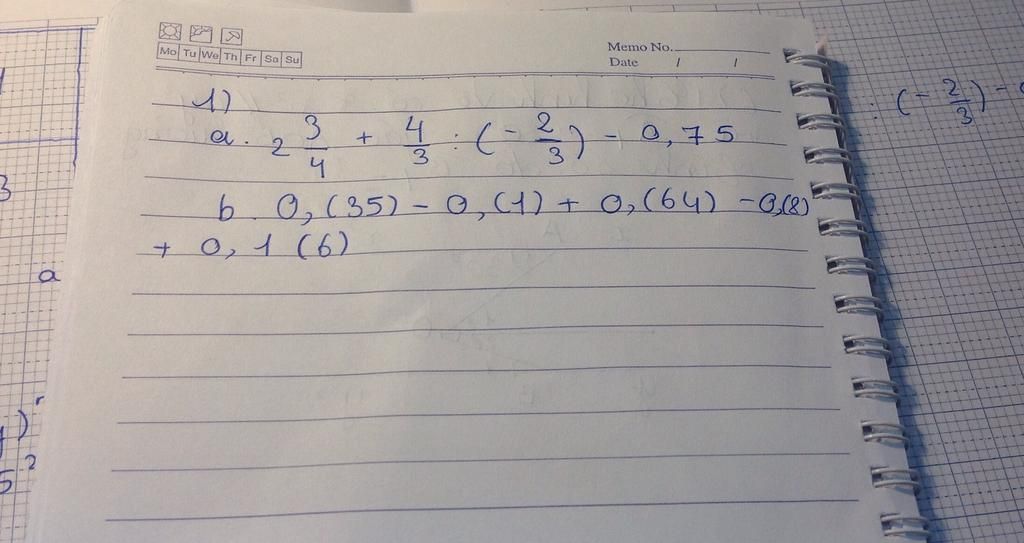 Mo Tu We Th Fr Sa Su
Memo No.
Date / /
1)
a. 2 3/4 + 4/3 : (- 2/3) - 0,75
b. 0,(35) - 0,(1) + 0,(64) - 0,(8)
+ 0,1(6)
: (- 2/3) -
3
a
)
5²